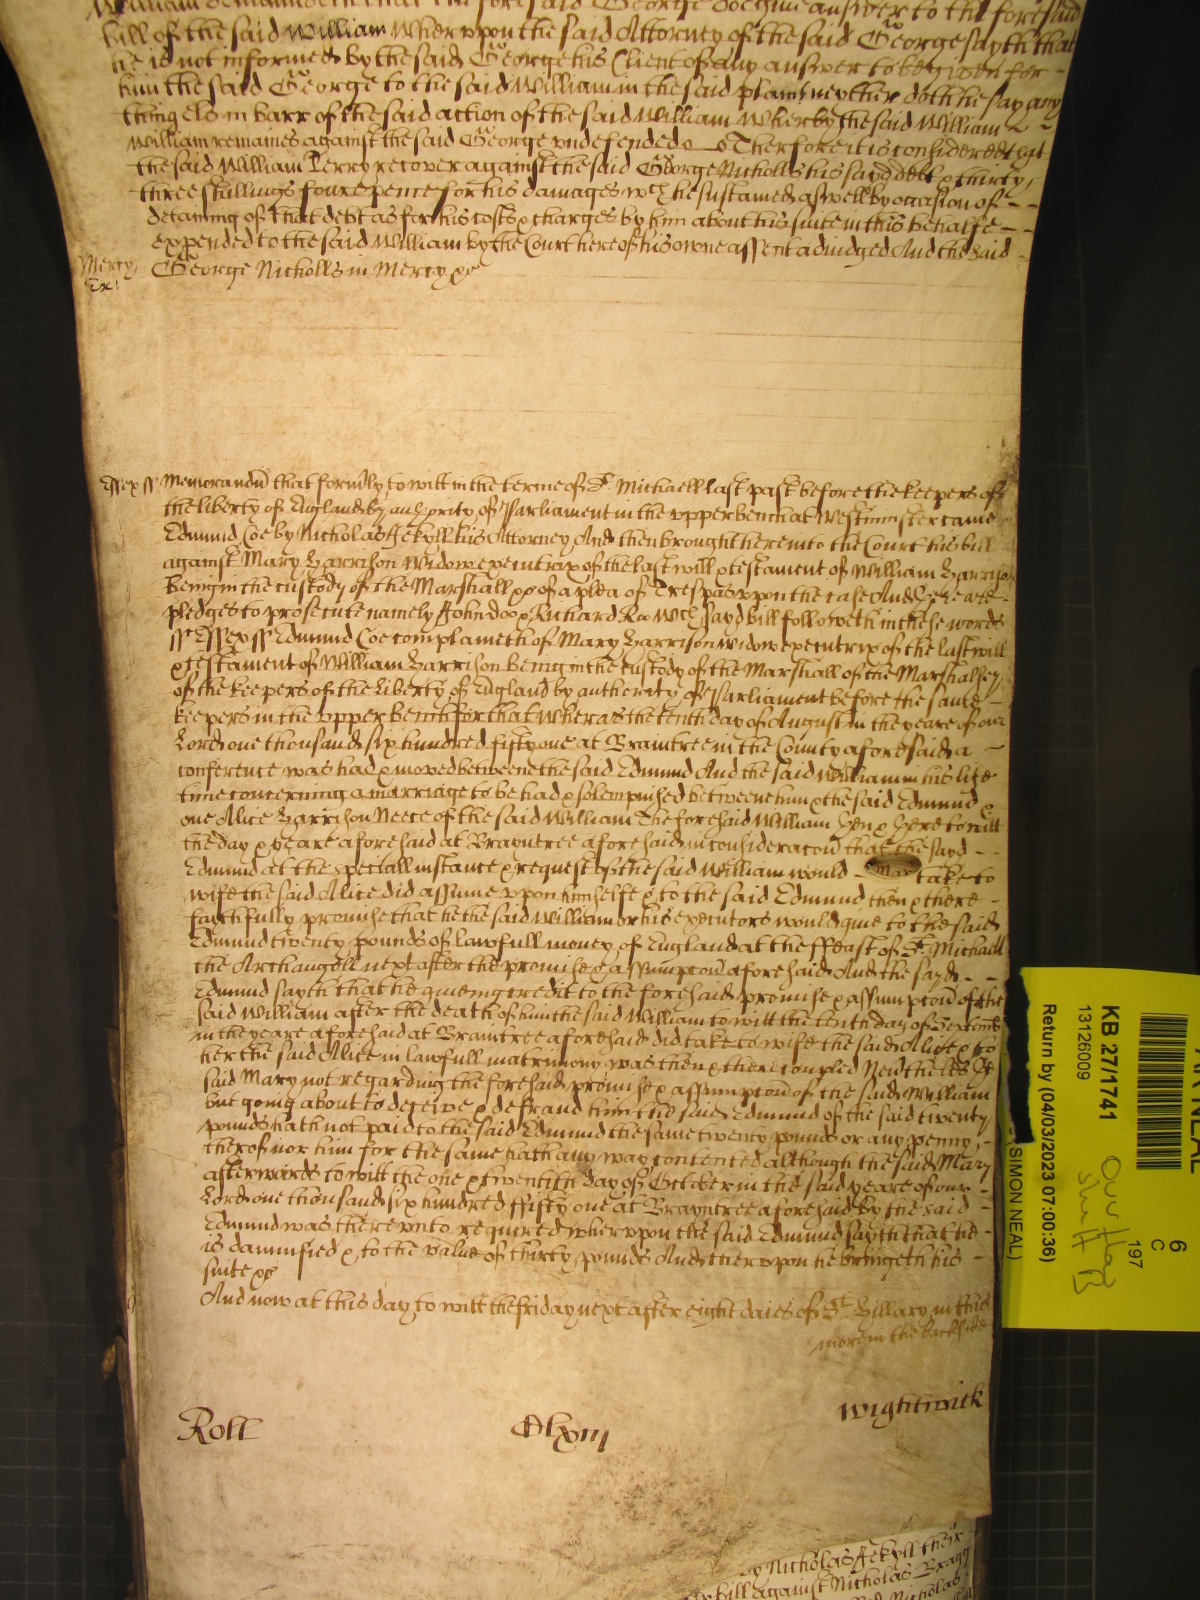 William demaundeth that the foresaid George doe give answer to the foresaid
bill of the said William Wherupon the said Attorney of the said George sayth that
he is not informed by the said George his Client of any answer to be given for -
him the said George to the said William in the said plaint neyther doth he say any
thinge in barr of the said action of the said William Wherby the said William -
William remaines against the said George undefended Therfore it is considered that
the said William Perry recover against the said George Nicholls his sayd debt & thirty
three shillings foure pence for his damages wch he sustained aswell by occasion of - -
detaining of that debt as for his costs & charges by him about his suite in this behalfe - -
expended to the said William by the Court here of his owne assent adiudged And the said -
Mercy George Nicholls in Mercy &c
Ex:
Essex ss Memorand that formerly to witt in the terme of St Michaell last past before the keepers of
the liberty of England by authority of Parliament in the upper bench at Westminster came
Edmund Coe by Nicholas Jekyll his Attorney And then brought here into the Court his bill
against Mary Harrison Widow executrix of the last will & testament of William Harrison
being in the custody of the Marshall &c of a plea of Trespas upon the case And there are -
pledges to prosecute namely John Doo & Richard Roo Wch sayd bill followeth in these words
ss Essex ss Edmund Coe complaineth of Mary Harrison widow executrix of the last will
& testament of William Harrison being in the custody of the Marshall of the Marshalsey
of the keepers of the liberty of England by authority of Parliament before the same -
keepers in the upper bench for that wheras the tenth day of August in the yeare of our
Lord one thousand six hundred fifty one at Braintree in the County aforesaid a -
conference was had & moved betweene the said Edmund And the said William in his life
time concerning a marriage to be had & solempnised betweene him the said Edmund &
one Alice Harrison Neece of the said William The foresaid William then & there to witt
the day & yeare aforesaid at Brayntree aforesaid in consideracon that the sayd - -
Edmund at the speciall instance & request of the said William would - take to
wife the said Alice did assume upon himselfe & to the said Edmund then & there -
faithfully promise that he the said William or his executors would give to the said
Edmund twenty pounds of lawfull money of England at the ffeast of St Michaell
the Archangell next after the promise & assumpcon aforesaid And the sayd - -
Edmund sayth that he giveing credit to the foresaid promise & assumpcon of the
said William after the death of him the said William to witt the tenth day of Septemb
in the yeare aforesaid at Braintree aforesaid did take to wife the said Alice & to
her the said Alice in lawfull matrimony was then & there coupled Neverthelesse the
said Mary not regarding the foresaid promise & assumpcon of the said William
but going about to deceive & defraud him the said Edmund of the said twenty
pounds hath not paid to the said Edmund the same twenty pounds or any penny -
therof nor him for the same hath any way contented although the said Mary
afterwards to witt the one & twentith day of October in the said yeare of our -
Lord one thousand six hundred ffifty one at Brayntree aforesaid by the said -
Edmund was thereunto required wherupon the said Edmund sayth that he -
is damnified & to the value of thirty pounds And therupon he bringeth his
suite &c
And now at this day to witt the friday next after eight daies of St Hillary in this
more in the backside
Roll Clxiii Wightwick
by Nicholas Jekyll their
bill against Nicholas Bragg
Nicholas
(SIMON NEAL)
Return by (04/03/2023 07:00:36)
13126009
KB 27/1741
197
C
6